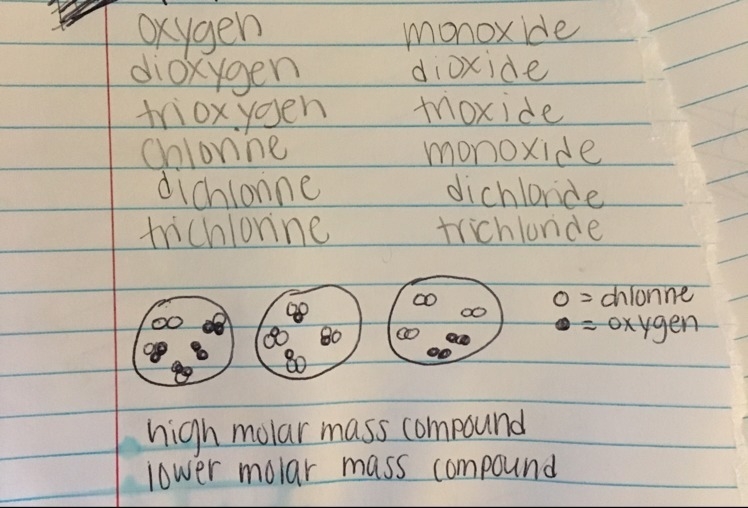 oxygen monoxide
dioxygen dioxide
trioxygen trioxide
chlorine monoxide
dichlorine dichloride
trichlorine trichloride
o = chlorine
● = oxygen
high molar mass compound
lower molar mass compound